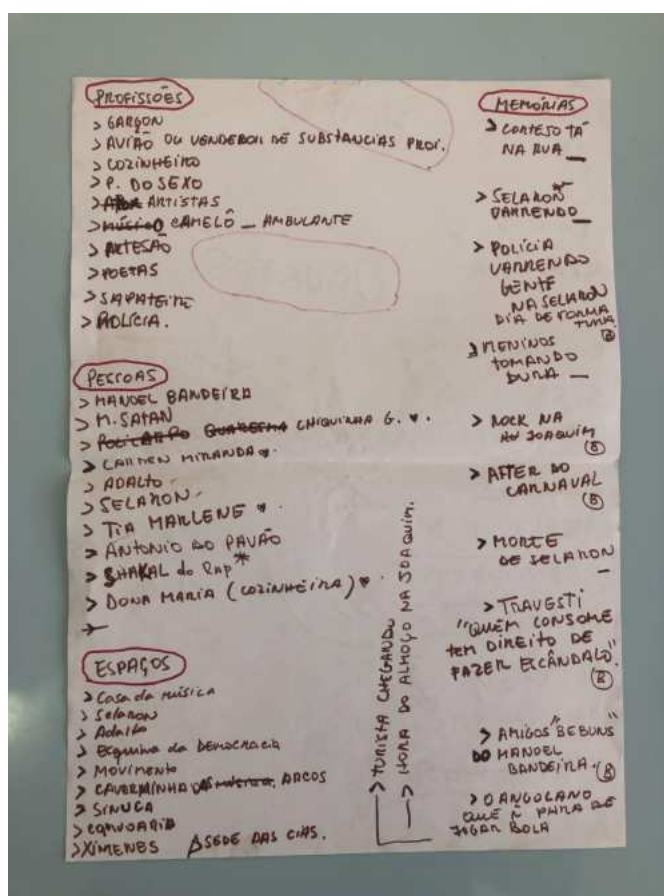 PROFISSÕES
> GARÇON
> AVIÃO OU VENDEDOR DE SUBSTANCIAS PROI.
> COZINHEIRO
> P. DO SEXO
> ARTISTAS
> MÚSICO CAMELÔ _ AMBULANTE
> ARTESÃO
> POETAS
> SAPATEIRO
> POLÍCIA.
PESSOAS
> MANOEL BANDEIRA
> M. SATAN
> POLICARPO QUARESMA CHIQUINHA G. ♥.
> CARMEN MIRANDA ♥.
> ADALTO
> SELARON
> TIA MARLENE ♥
> ANTONIO DO PAVÃO
> SHAKAL do Rap *
> DONA MARIA (COZINHEIRA) ♥.
>
ESPAÇOS
> Casa da música
> Selaron
> Adalto
> Esquina da Democracia
> MOVIMENTO
> CAVERMINHA ARCOS
> SINUCA
> XIMENES
SEDE DAS CIAS.
> TURISTA CHEGANDO
> HORA DO ALMOÇO NA JOAQUIM.
MEMÓRIAS
> CORTEJO TÁ
NA RUA _
> SELARON
VARRENDO _
> POLÍCIA
VARRENDO
GENTE
NA SELARON
DIA DE FORMA
TURA.
> MENINOS
TOMANDO
DURA _
> ROCK NA
AV JOAQUIM
(B)
> AFTER DO
CARNAVAL
(B)
> MORTE
DE SELARON
_
> TRAVESTI
"QUEM CONSOME
TEM DIREITO DE
FAZER ESCÂNDALO".
(B)
> AMIGOS "BEBUNS"
DO MANOEL
BANDEIRA. (B)
> O ANGOLANO
QUE Ñ PARA DE
JOGAR BOLA